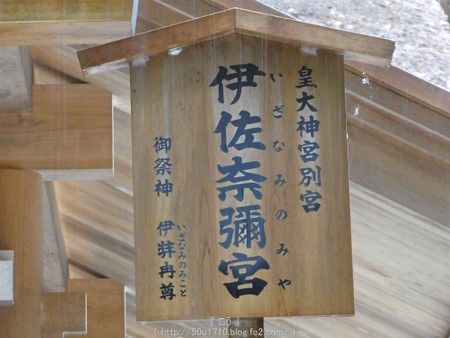 皇大神宮別宮
いざなみのみや
伊佐奈彌宮
御祭神 伊弉冉尊
いざなみのみこと
http://50u1710.blog.fc2.com/